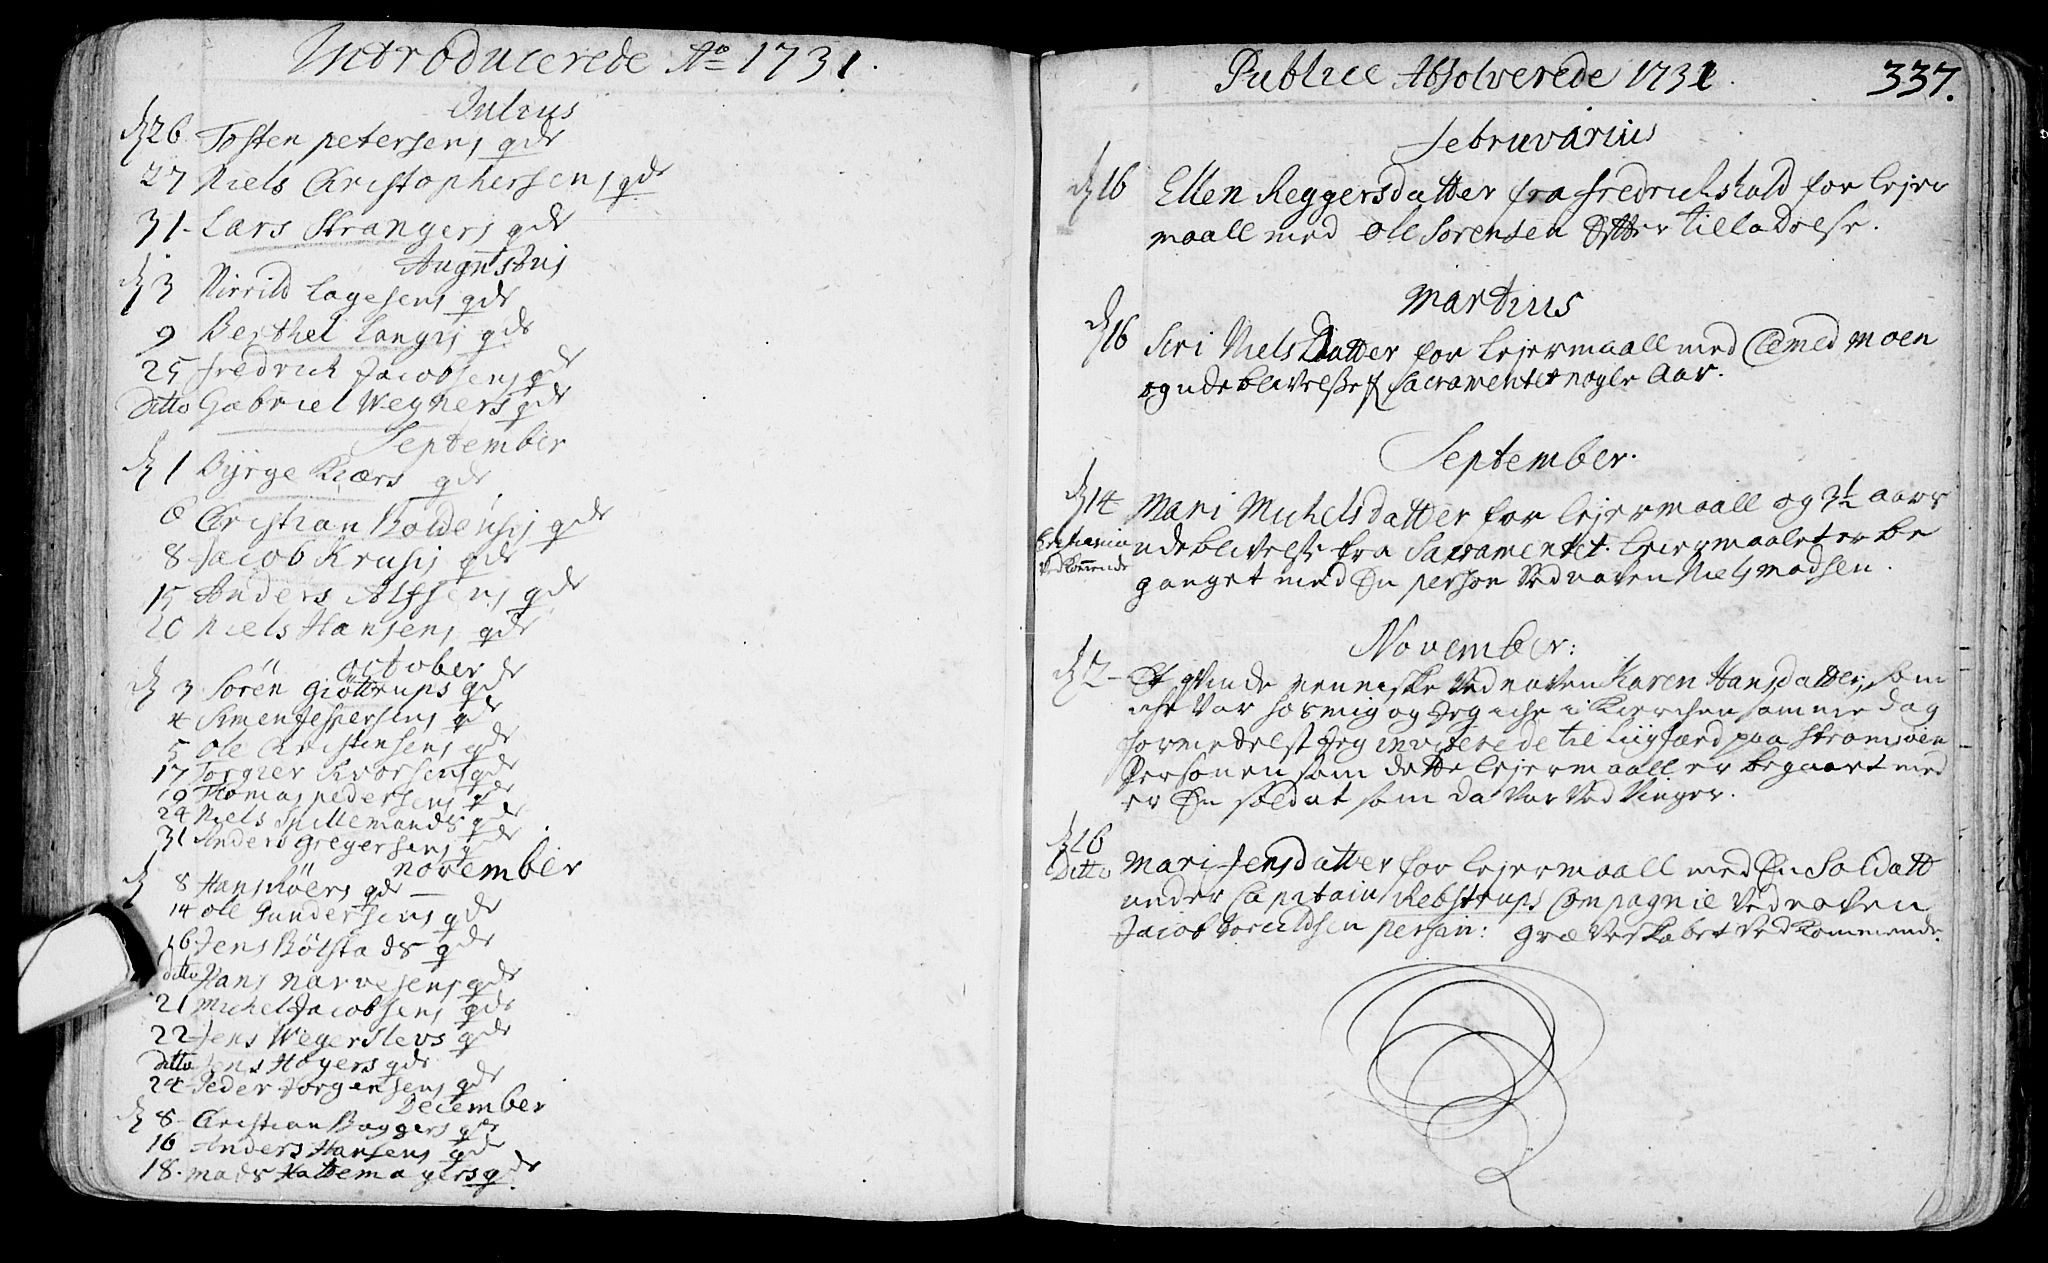 Introducerede Ao 1731.
Julius
d 26. Tosten petersens qde
27 Niels Christophersens qde
31. Lars Strangers qde
Augustus
d 3 Lagesens qde
9 Berthel Langis qde
25 fredrich Jacobsens qde
Ditto Gabriel Wegners qde
September
d 1 Byrge Kiærs qde
6 Christian Boldensis qde
8 Jacob Krusis qde
15 Anders Alfsens qde
20 Niels Hansens qde
october
d 3 Sören Giöttrups qde
4 Simen Jespersens qde
5 Ole Christensens qde
17 Torgier qde
19 Thomas pedersens qde
24 Niels Spillemands qde
31 Anders Gregersens qde
november
d 8 Hans Röers qde
14 Ole Gundersens qde
16 Jens Bölstads qde
ditto Hans Narvesens qde
21 Michel Jacobsens qde
22 Jens Wegerslevs qde
ditto Jens Höyers qde
24 Peder Jörgensens qde
December
d 8 Christian Baggers qde
16 Anders Hansens qde
18. mads Hattemagers qde
Publice Absolverede 1731.
337.
februvarius
d 16 Ellen Reggersdatter fra fredrichshald for lejer
maall med Ole Sorensen Efter tilladelse.
Martius
d 16 Siri Niels Datter for lejermaall med moen
og udeblivelse fr Sacramentet nogle Aar.
September.
d 14 Mari Michelsdatter for lejermaall og 3½ aars
Christiania udeblivelse fra Sacramentet. lejermaalet er be
vedkommende ganget med En person ved naven Niels madsen.
November:
d 2 Et qvinde menniske ved naven Karen Hansdatter, som
iche var hos mig og Jeg iche i Kierchen samme dag
formedelst Jeg inviterede til liigfærd paa Stromsöen
Personen som dette lejermaall er begaaet med
er En soldat som da var ved Vinger.
d 16
Ditto Mari Jensdatter for lejermaall med En Soldatt
under Capitain Rebstrups Compagnie ved naven
Jacob persen: Græverskabet vedkommende.